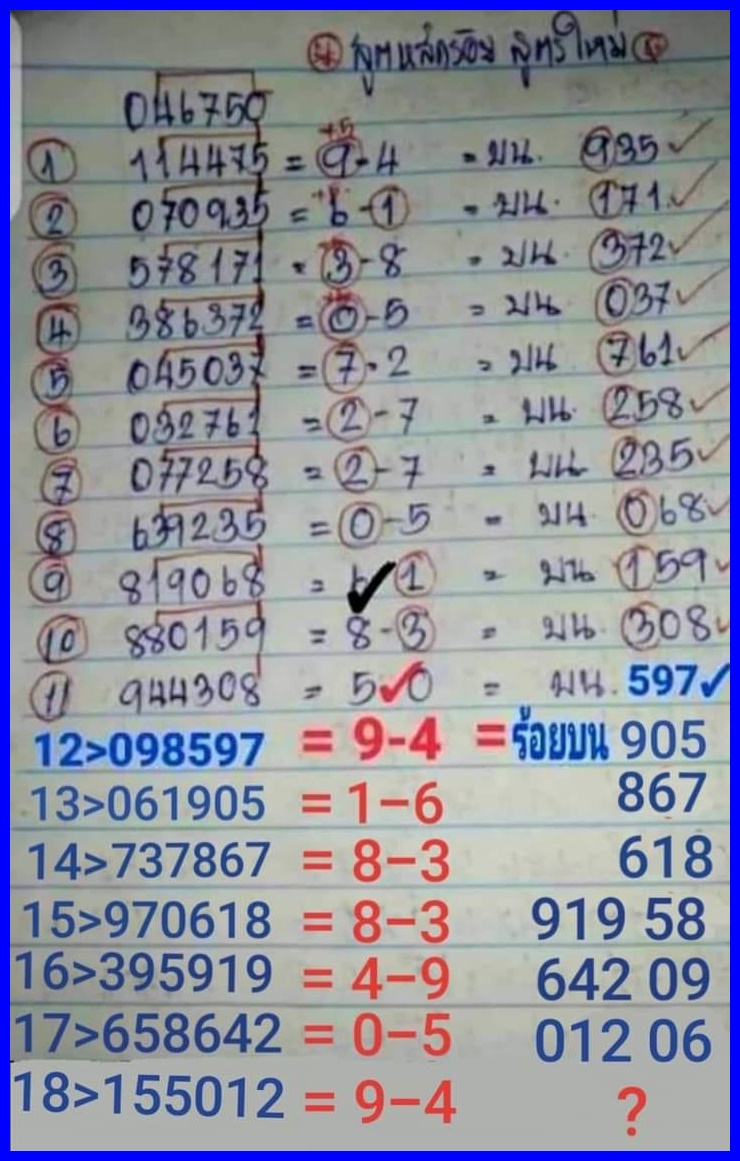 น สูตรหลักร้อย สูตรใหม่
046750
+5
1 114475 = 9-4 = บน. 935 ✓
2 070935 = 6-1 = บน. 171 ✓
3 578171 = 3-8 = บน. 372 ✓
4 386372 = 0-5 = บน 037 ✓
5 045037 = 7-2 = บน 761 ✓
6 032761 = 2-7 = บน. 258 ✓
7 077258 = 2-7 = บน 235 ✓
8 639235 = 0-5 = บน 068 ✓
9 819068 = ✓ 1 = บน 159 ✓
10 880159 = 8-3 = บน. 308 ✓
11 944308 = 5✓0 = บน. 597✓
12>098597 = 9-4 =ร้อยบน 905
13>061905 = 1-6 867
14>737867 = 8-3 618
15>970618 = 8-3 919 58
16>395919 = 4-9 642 09
17>658642 = 0-5 012 06
18>155012 = 9-4 ?